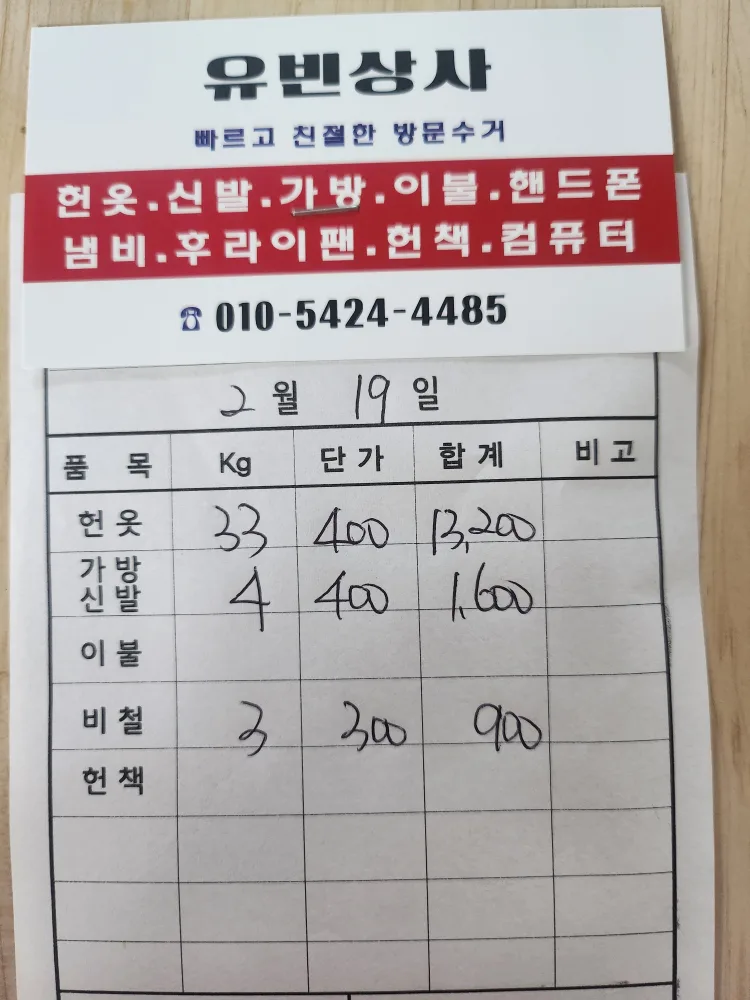 유빈상사
빠르고 친절한 방문수거
헌옷.신발.가방.이불.핸드폰
냄비.후라이팬.헌책.컴퓨터
☎ 010-5424-4485
2월 19일
품 목 Kg 단가 합계 비고
헌옷 33 400 13,200
가방
신발 4 400 1,600
이불
비철 3 300 900
헌책